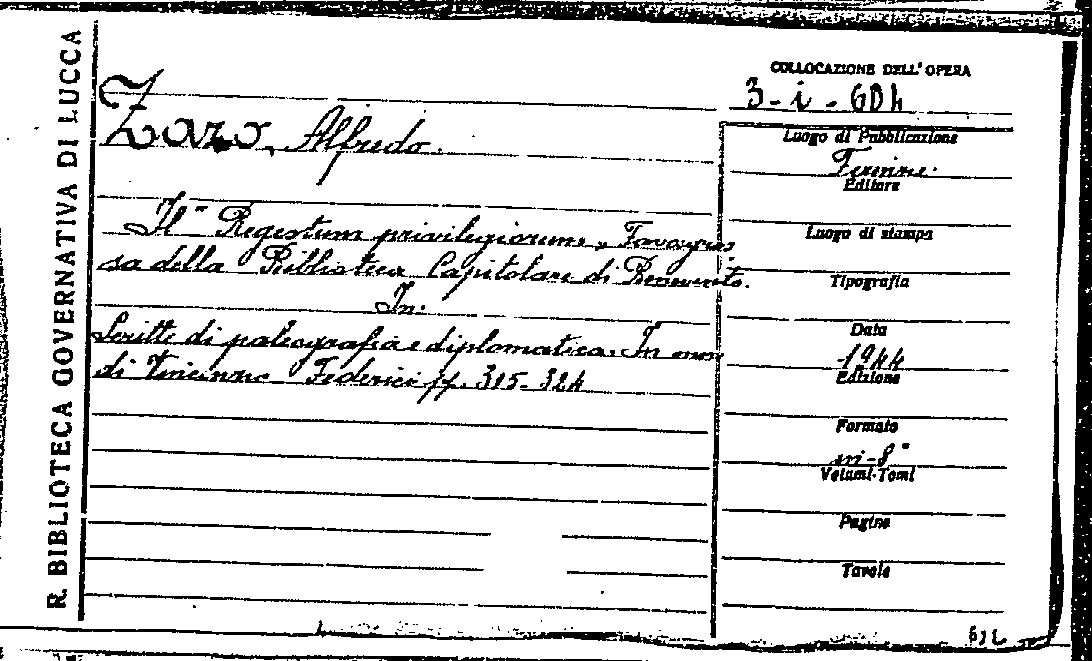 R. BIBLIOTECA GOVERNATIVA DI LUCCA
Zazo, Alfredo.
Il "Regestum privilegiorum"
sa della Biblioteca Capitolare di Benevento.
In:
Scritti di paleografia e diplomatica. In onor
di Vincenzo Federici pp. 315-324
COLLOCAZIONE DELL'OPERA
3-i-604
Luogo di Pubblicazione
Firenze.
Editore
Luogo di stampa
Tipografia
Data
1944
Edizione
Formato
in-8°
Volumi-Tomi
Pagine
Tavole